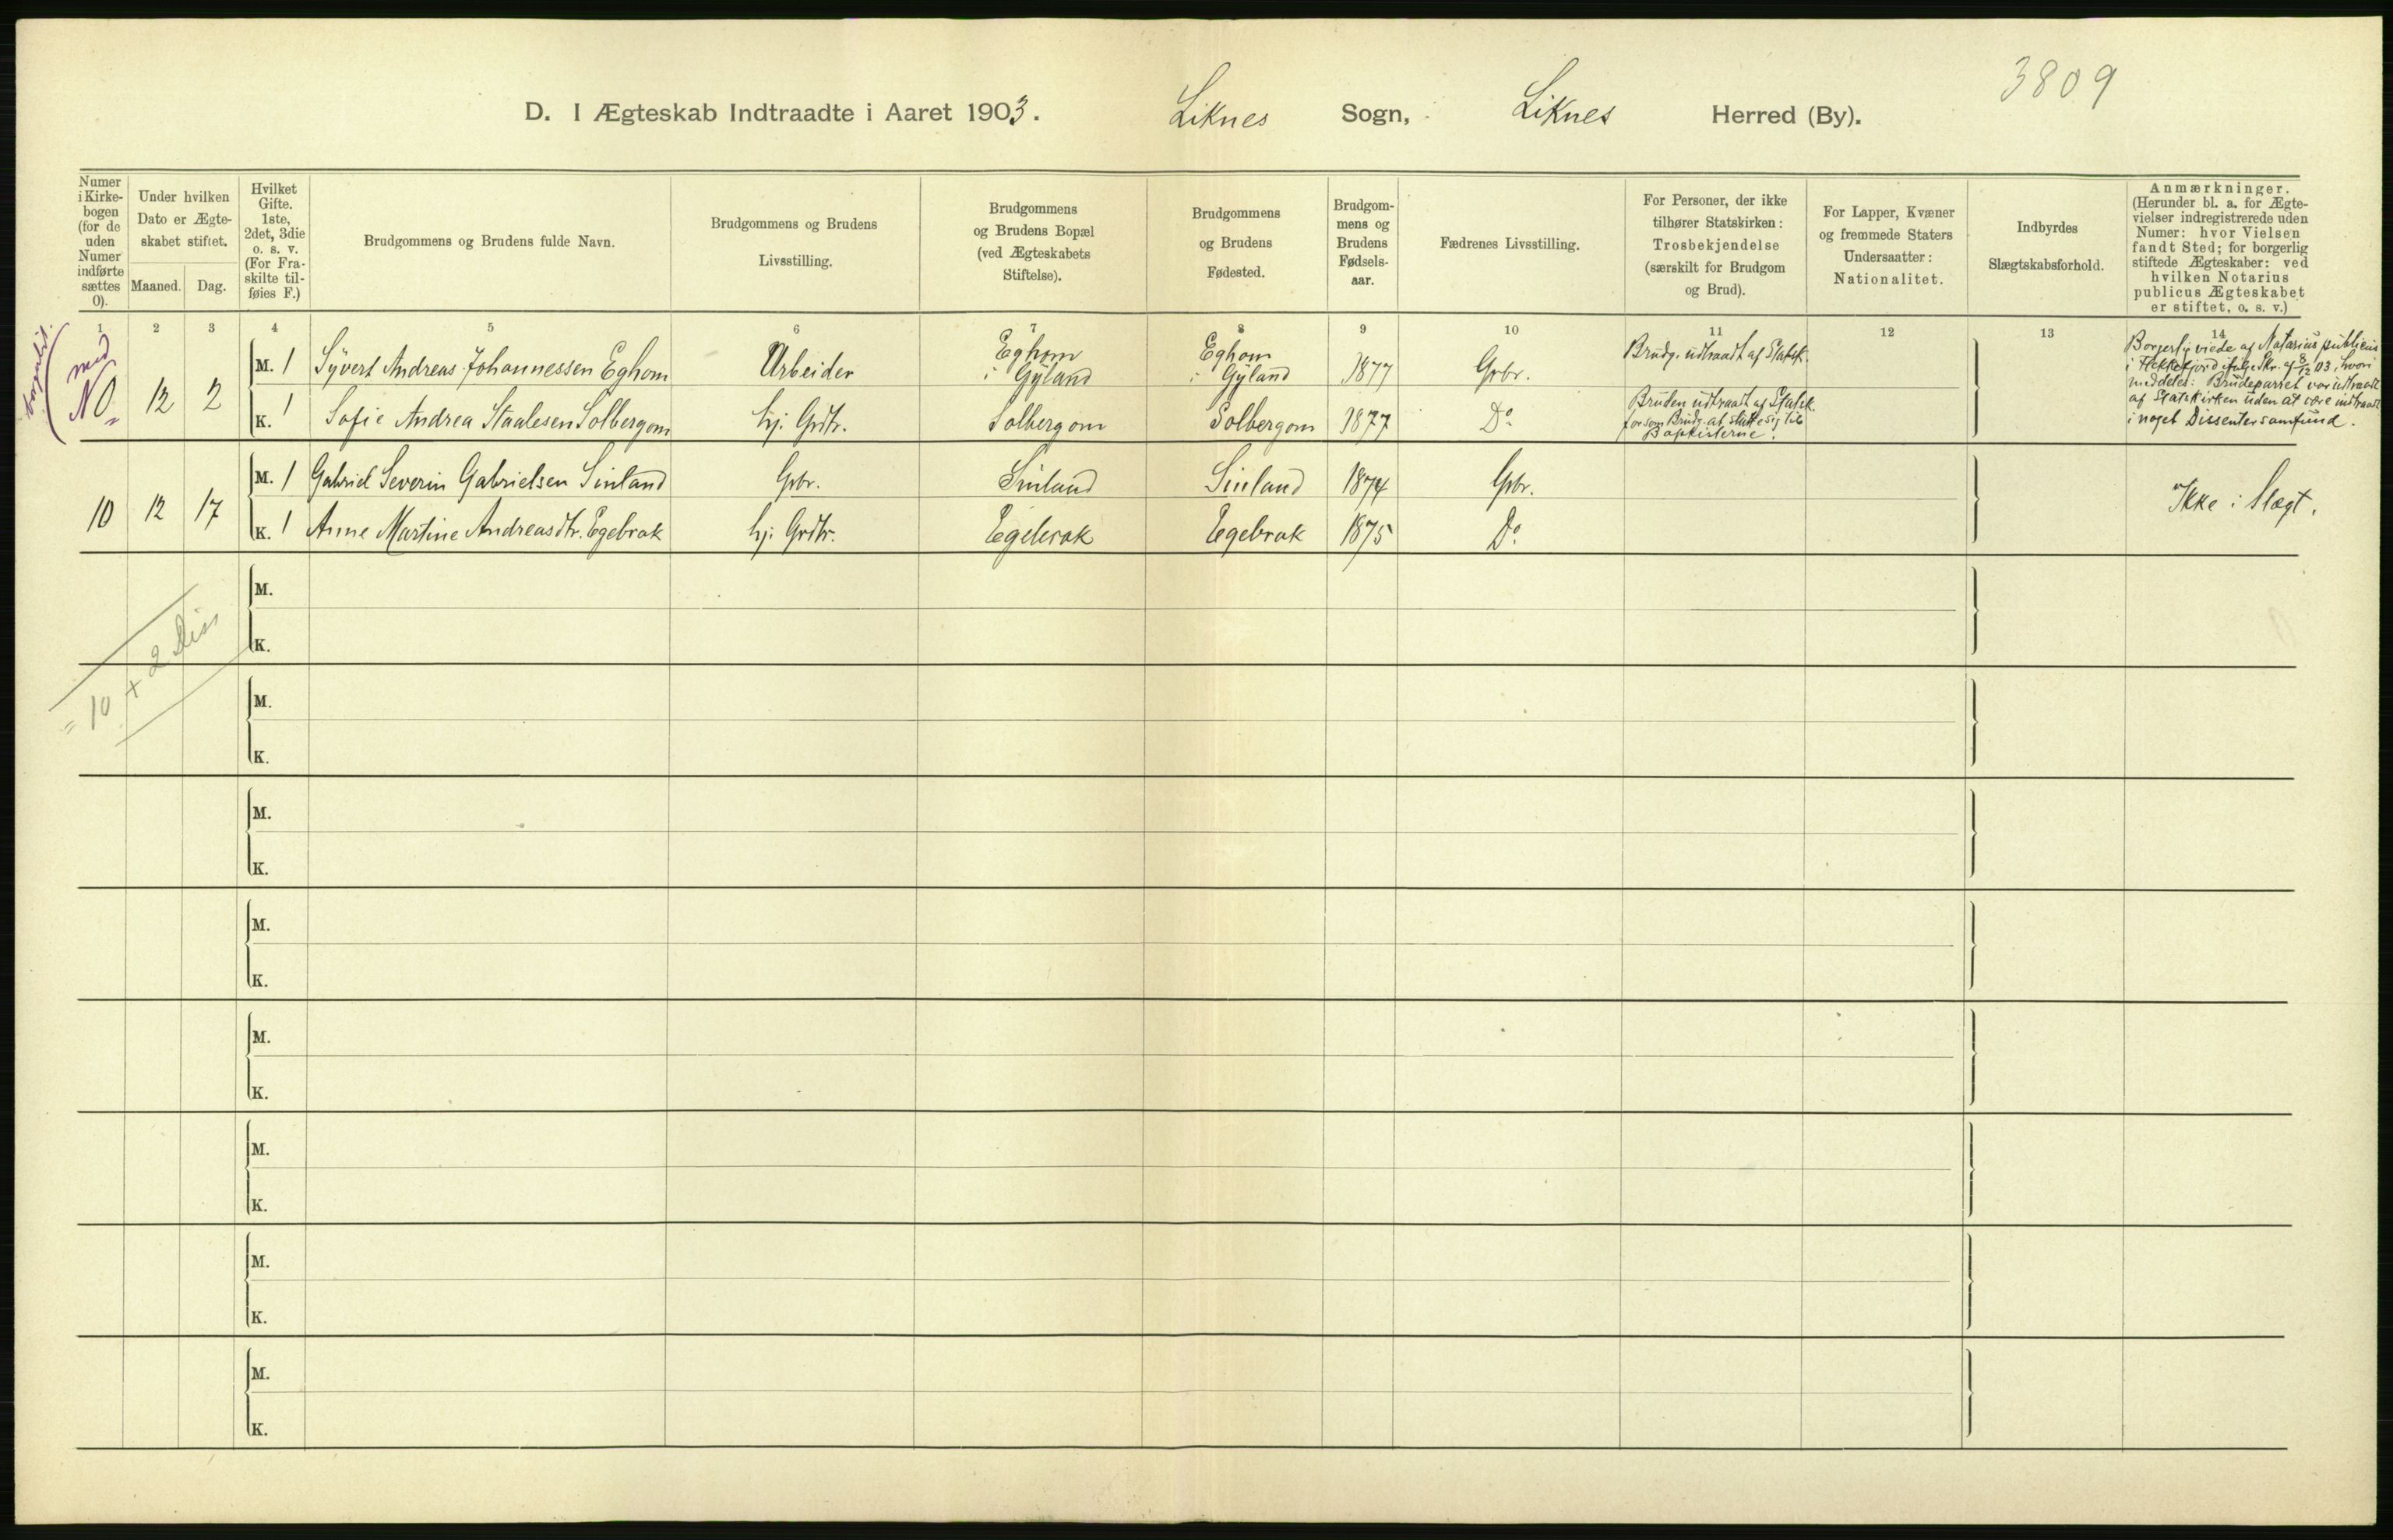 3809
D. I Ægteskab Indtraadte i Aaret 1903. Liknes Sogn, Liknes Herred (By).
Numer i Kirkebogen (for de uden Numer indførte sættes 0).
Under hvilken Dato er Ægteskabet stiftet.
Maaned. Dag.
Hvilket Gifte. 1ste, 2det, 3die o. s. v. (For Fraskilte tilføies F.)
Brudgommens og Brudens fulde Navn.
Brudgommens og Brudens Livsstilling.
Brudgommens og Brudens Bopæl (ved Ægteskabets Stiftelse).
Brudgommens og Brudens Fødested.
Brudgommens og Brudens Fødselsaar.
Fædrenes Livsstilling.
For Personer, der ikke tilhører Statskirken: Trosbekjendelse (særskilt for Brudgom og Brud).
For Lapper, Kvæner og fremmede Staters Undersaatter: Nationalitet.
Indbyrdes Slægtskabsforhold.
Anmærkninger. (Herunder bl. a. for Ægtevielser indregistrerede uden Numer: hvor Vielsen fandt Sted; for borgerlig stiftede Ægteskaber: ved hvilken Notarius publicus Ægteskabet er stiftet, o. s. v.)
1 2 3 4 5 6 7 8 9 10 11 12 13 14
borgerlit.
med
N0 12 2
M. 1 Syvert Andreas Johannessen Eghom Arbeider Eghom i Gyland Eghom i Gyland 1877 Grbr. Brudg. udtraadt af Statsk.
K. 1 Sofie Andrea Staalesen Solbergom hj. Grdtr. Solbergom Solbergom 1877 Do Bruden udtraadt af Statsk. for som Brudg. at slutte sig til Baptisterne.
Borgerlig viede af Notarius publicus
i Flekkefjord ifølge Skr. af 8/12 03, hvori
meddeles: Brudeparret var udtraadt
af Statskirken uden at være indtraadt
i noget Dissentersamfund.
10 12 17
M. 1 Gabriel Severin Gabrielsen Sinland Grbr. Sinland Sinland 1874 Grbr.
K. 1 Anne Martine Andreasdtr. Egebrok hj. Grdtr. Egebrok Egebrok 1875 Do
Ikke i Slægt.
= 10 + 2 Diss
M.
K.
M.
K.
M.
K.
M.
K.
M.
K.
M.
K.
M.
K.
M.
K.